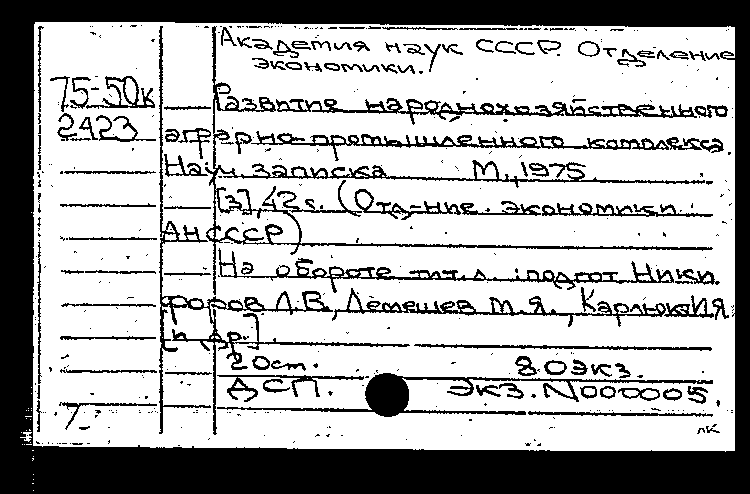 Академия наук СССР. Отделение
экономики.
75-50к
Развитие народнохозяйственного
2423
аграрно-промышленного комплекса.
Науч. записка М., 1975.
[3], 42 с. (Отд-ние экономики
АН СССР)
На обороте тит. л.: подгот. Ники
форов Л.В., Лемешев М.Я., Карлюк И.Я.
[и др.].
20 ст. 80 экз.
ДСП. экз. N000005.
лк